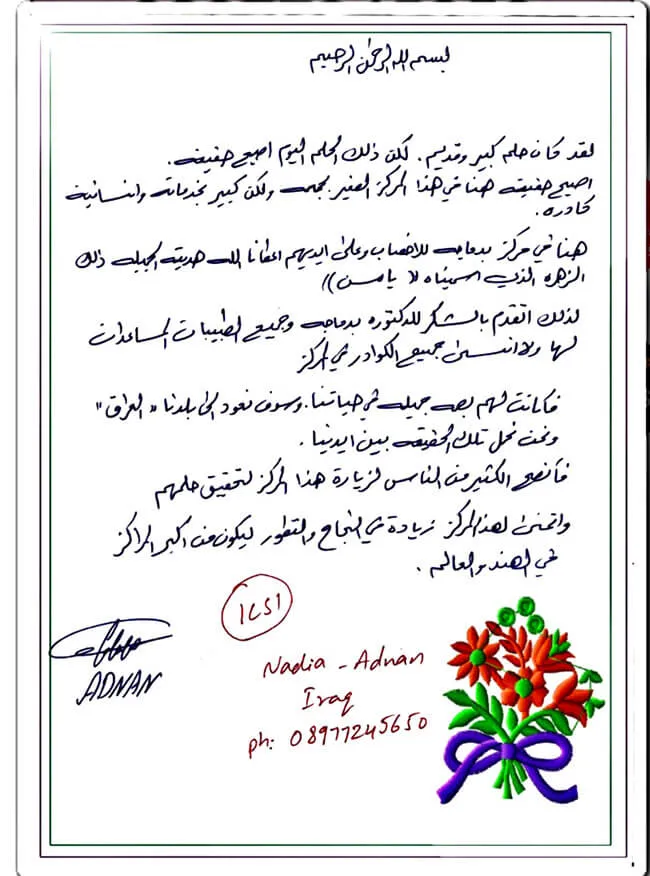 بسم الله الرحمن الرحيم
لقد كان حلم كبير وقديم. لكن ذلك الحلم اليوم اصبح حقيقة.
اصبح حقيقه هنا في هذا المركز الصغير بحجمه ولكن كبير بخدماته وانسانية
كادره.
هنا في مركز بدماجه للاخصاب وعلى ايديهم اعطانا الله هديته الجميله ذلك
الزهره الذي اسميناه لا ياسن ))
لذلك اتقدم بالشكر للدكتوره بدماجه وجميع الطبيبات المساعدات
لها ولا انسى جميع الكوادر في المركز
فكانت لهم بصمه جميله في حياتنا. وسوف نعود الى بلدنا " العراق "
ونحن نحمل تلك الحقيقه بين ايدينا .
فأنصح الكثير من الناس لزيارة هذا المركز لتحقيق حلمهم
واتمنى لهذ المركز زيادة في النجاح والتطور ليكون من اكبر المراكز
في الهند والعالم .
ICSI
ADNAN
Nadia - Adnan
Iraq
ph: 08977245650